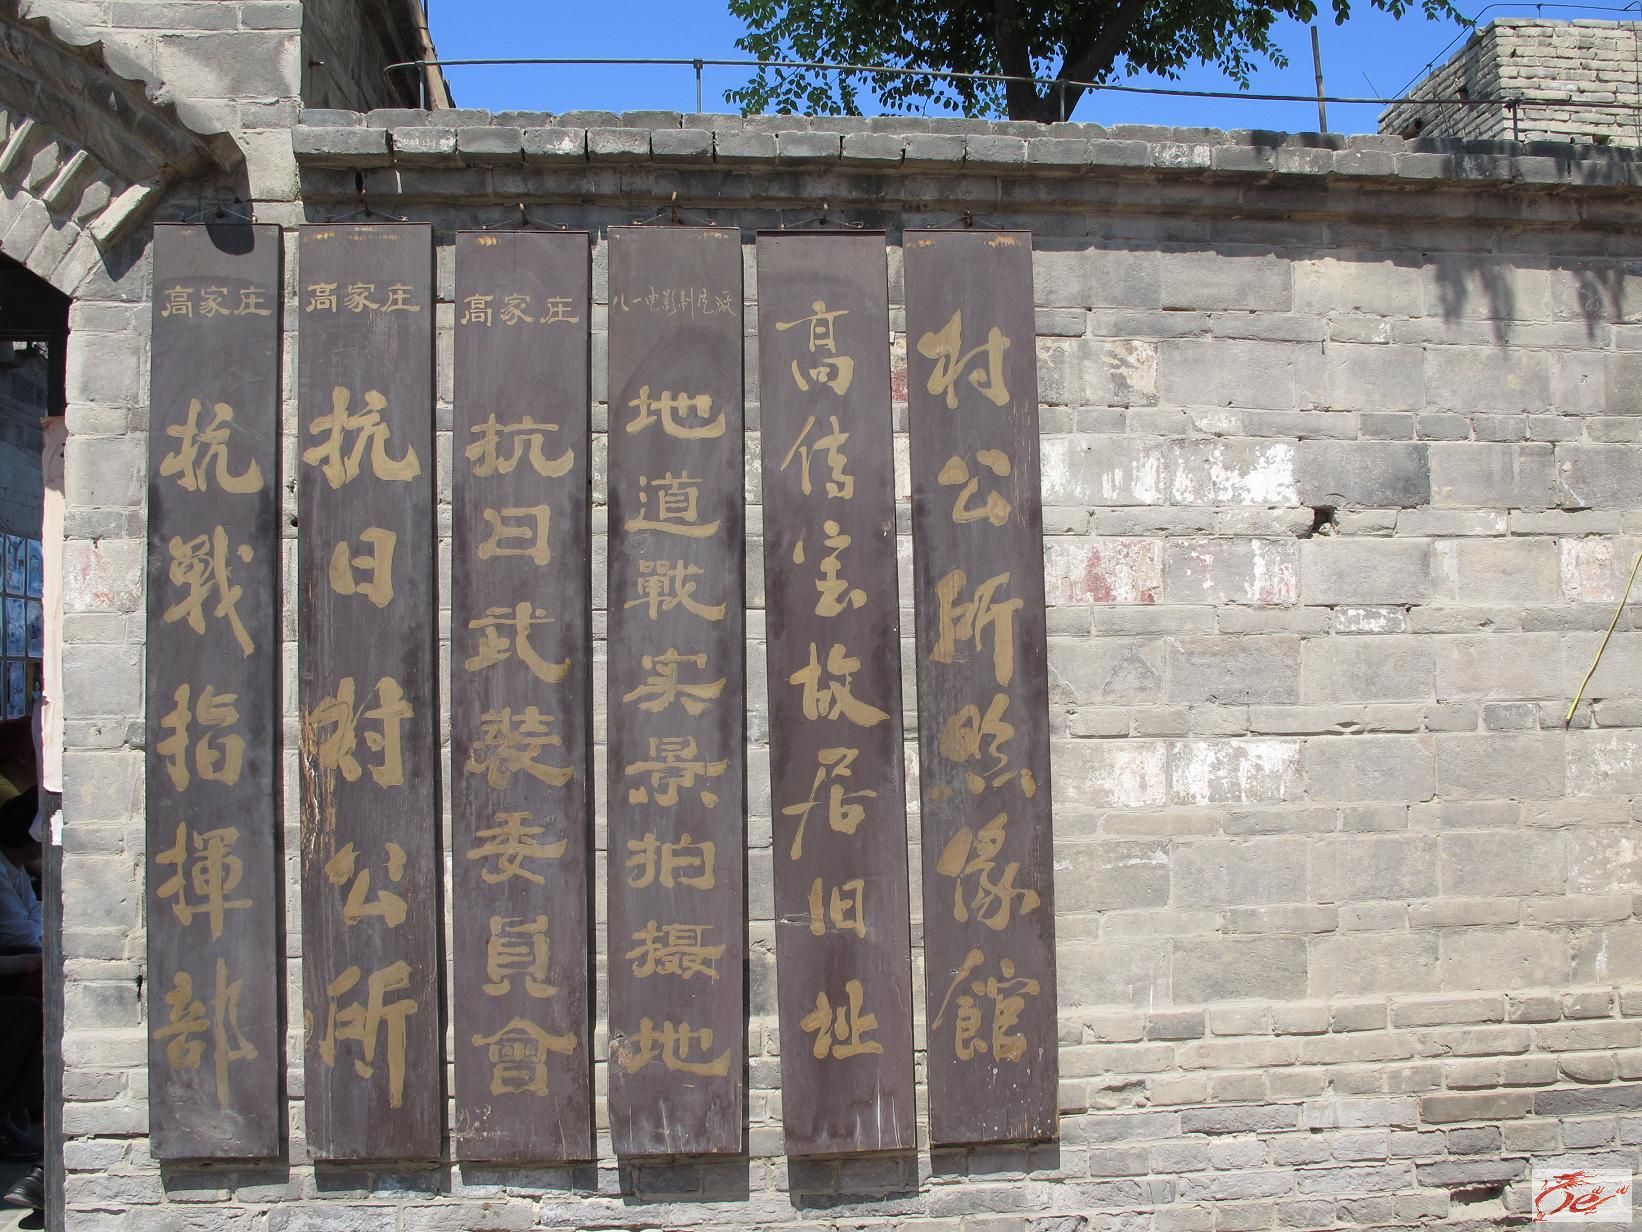 高家庄
抗戰指揮部
高家庄
抗日村公所
高家庄
抗日武装委員會
八一电影制片厰
地道戰实景拍摄地
高传宝故居旧址
村公所照像館